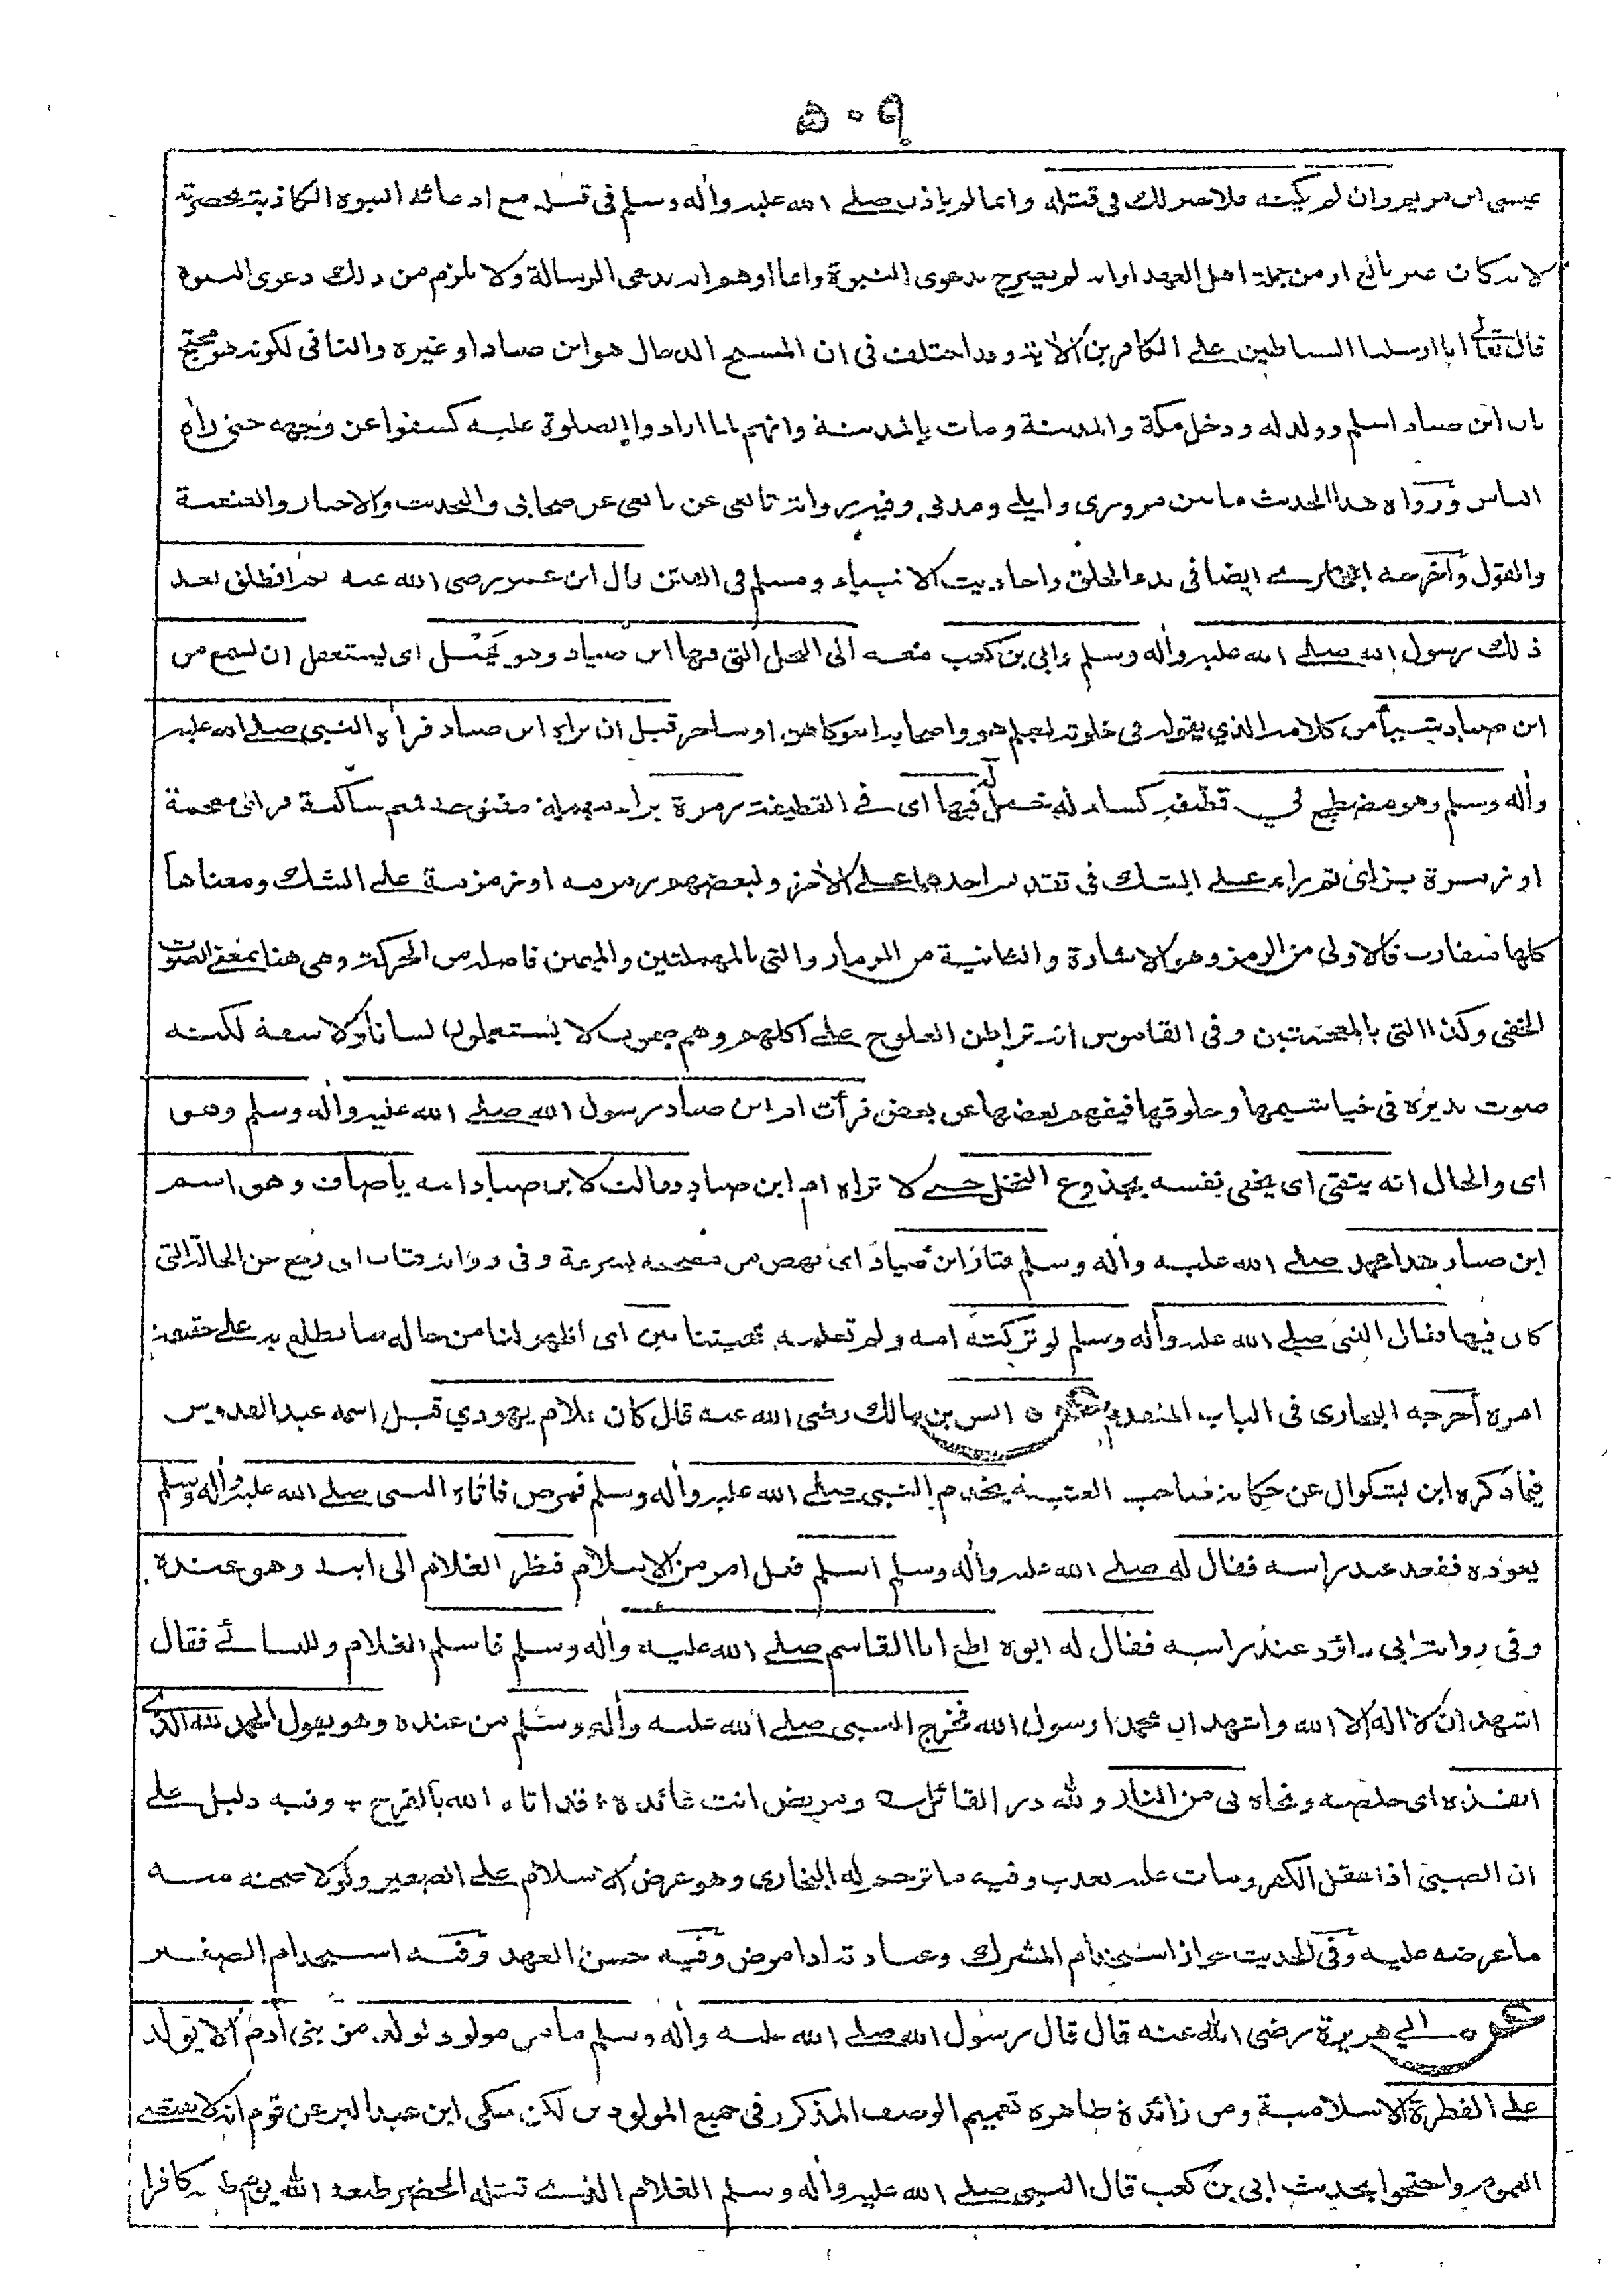 ٥٠٩
عيسى ابن مريم وان لم يكنه فلا خير لك في قتله وانما لم ياذن صلى الله عليه وأله وسلم في قتله مع ادعائه النبوة الكاذبة بحضرته
لانه كان غير بالغ او من جملة اهل العهد او انه لم يصرح بدعوى النبوة وانما اوهم انه يدعى الرسالة ولا يلزم من ذلك دعوى النبوة
قال تعالى انا ارسلنا الشياطين على الكافرين الاية وقد اختلف فى ان المسيح الدجال هو ابن صياد او غيره والنافى لكونه هو محتج
بان ابن صياد اسلم وولد له ودخل مكة والمدينة ومات بالمدينة وانهم لما ارادوا الصلوة عليه كشفوا عن وجهه حتى رأه
الناس ورواة هذا الحديث ما بين مروزى وايلى ومدنى وفيه رواية تابعى عن تابعى عن صحابى والتحديث والاخبار والعنعنة
والقول وأخرجه البخارى ايضا فى بدء الخلق واحاديث الانبياء ومسلم فى الفتن قال ابن عمر رضى الله عنه ثم انطلق بعد
ذلك رسول الله صلى الله عليه وأله وسلم وابى بن كعب معه الى النخل التى فيها ابن صياد وهو يختل اى يستغفل ان يسمع من
ابن صياد شيأ من كلامه الذي يقوله فى خلوته ليعلم هو واصحابه اهو كاهن او ساحر قبل ان يراه ابن صياد فرأه النبي صلى الله عليه
وأله وسلم وهو مضطجع في قطيفة كساء له خمل له فيها اى فى القطيفة رمرة براء مهملة مفتوحة فميم ساكنة فزاى معجمة
او زمرة بزاى ثم راء على الشك فى تقديم احدهما على الاخر ولبعضهم رمرمة او زمزمة على الشك ومعناها
كلها متقارب فالاولى من الرمز وهو الاشارة والثانية من المزمار والتى بالمهملتين والميمين فاصله من الحركة وهى هنا بمعنى الصوت
الخفى وكذا التى بالمعجمتين وفى القاموس انه تراطن العلوج على اكلهم وهم صموت لا يستعملون لسانا ولا شفة لكنه
صوت تديره فى خياشيمها وحلوقها فيفهم بعضها عن بعض فرأت ام ابن صياد رسول الله صلى الله عليه وأله وسلم وهو
اى والحال انه يتقى اى يخفى نفسه بجذوع النخل حتى لا تراه ام ابن صياد فقالت لابن صياد امه يا صاف وهو اسم
ابن صياد هذا محمد صلى الله عليه وأله وسلم فثار ابن صياد اى نهض من مضجعه بسرعة وفى رواية فثاب اى رجع عن الحالة التى
كان فيها فقال النبى صلى الله عليه وأله وسلم لو تركته امه ولم تعلمه بمجيئنا بين اى اظهر لنا من حاله ما نطلع به على حقيقة
امره أخرجه البخارى فى الباب المتقدم عن انس بن مالك رضى الله عنه قال كان غلام يهودي قيل اسمه عبد القدوس
فيما ذكره ابن بشكوال عن حكاية صاحب العتبية يخدم النبى صلى الله عليه وأله وسلم فمرض فاتاه النبى صلى الله عليه وأله وسلم
يعوده فقعد عند راسه فقال له صلى الله عليه وأله وسلم اسلم فعل امر من الاسلام فنظر الغلام الى ابيه وهو عنده
وفى رواية ابى داؤد عند راسه فقال له ابوه اطع ابا القاسم صلى الله عليه وأله وسلم فاسلم الغلام وللنسائى فقال
اشهد ان لا اله الا الله واشهد ان محمدا رسول الله فخرج النبى صلى الله عليه وأله وسلم من عنده وهو يقول الحمد لله الذى
انقذه اى خلصه ونجاه بى من النار ولله در القائل ومريض انت عائده ؛ قد اتاه الله بالفرج + وفيه دليل على
ان الصبى اذا عقل الكفر ومات عليه يعذب وفيه ما ترجم له البخارى وهو عرض الاسلام على الصغير ولولا صحته منه
ما عرضه عليه وفى الحديث جواز استخدام المشرك وعيادته اذا مرض وفيه حسن العهد وفيه استخدام الصغير
عن ابي هريرة رضى الله عنه قال قال رسول الله صلى الله عليه وأله وسلم ما من مولود يولد من بنى أدم الا يولد
على الفطرة الاسلامية ومن زائدة ظاهره تعميم الوصف المذكور فى جميع المولودين لكن حكى ابن عبد البر عن قوم انه لا يقتضى
العموم واحتجوا بحديث ابى بن كعب قال النبى صلى الله عليه وأله وسلم الغلام الذى قتله الخضر طبعه الله يوم طبعه كافرا